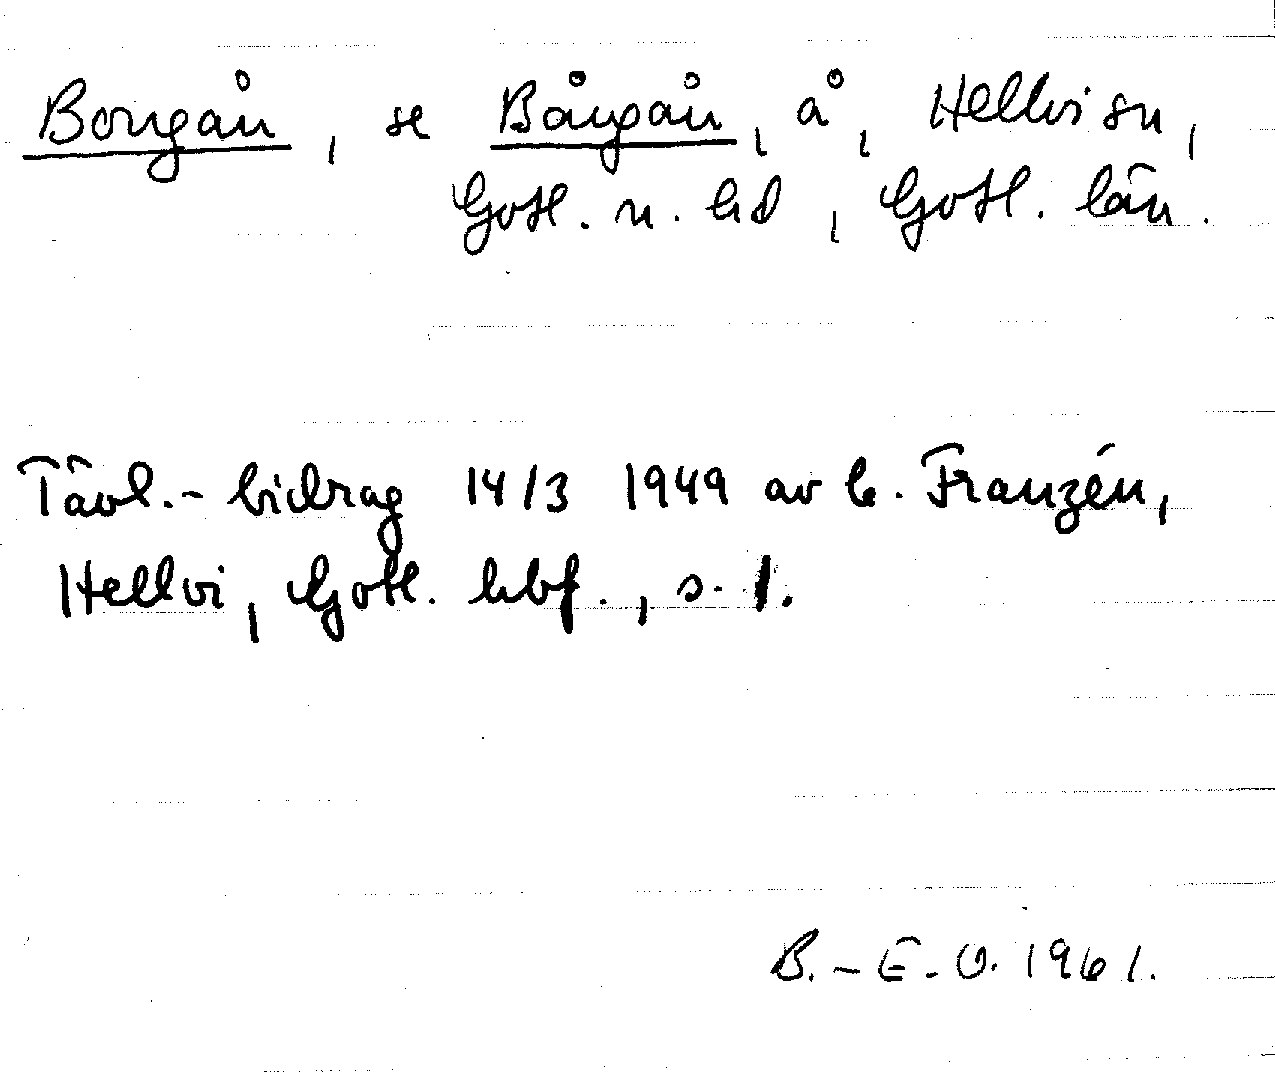 Bongån, se Bångån, å, Hellvi sn,
Gotl. n. hd, Gotl. län.
Tävl.-bidrag 14/3 1949 av G. Franzén,
Hellvi, Gotl. hbf., s. 1.
B.-E.O. 1961.